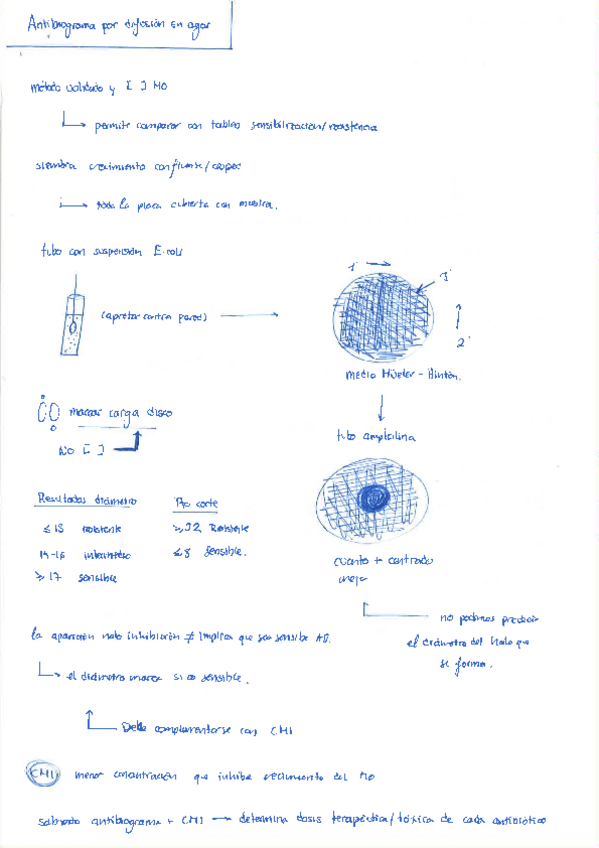 Antibiograma por difusión en agar
método validado y [ ] MO
permite comparar con tablas sensibilización/resistencia
siembra crecimiento confluente/césped
toda la placa cubierta con muestra.
tubo con suspensión E.coli
(apretar contra pared)
1'
3'
2'
medio Müeler-Hinton.
marcar carga disco
NO [ ]
tubo ampicilina
Resultados diámetro
Pto corte
resistente
≥32 Resistente
14-16 intermedio
≤8 sensible.
≥17 sensible
cuanto + centrado
mejor
no podemos predecir
el diámetro del halo que
se forma.
la aparición halo inhibición ≠ implica que sea sensible AB.
el diámetro marca si es sensible.
Debe complementarse con CMI
CMI menor concentración que inhibe crecimiento del MO
sabiendo antibiograma + CMI → determina dosis terapéutica/tóxica de cada antibiótico